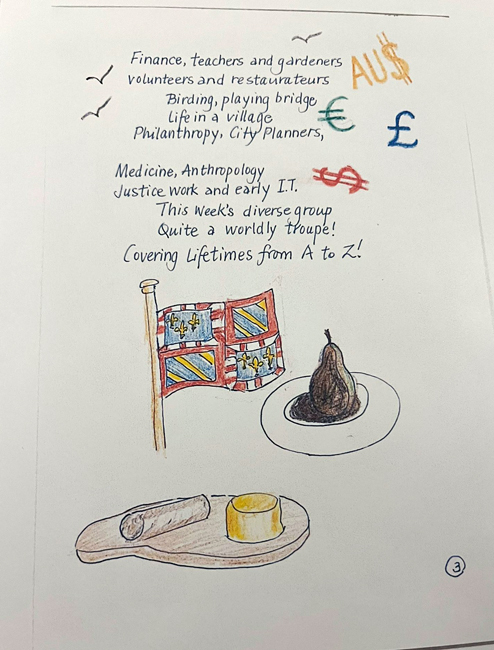 Finance, teachers and gardeners
AU$
volunteers and restaurateurs
Birding, playing bridge
€
Life in a village
£
Philanthropy, City Planners,
Medicine, Anthropology
$
Justice work and early I.T.
This week's diverse group
Quite a worldly troupe!
Covering Lifetimes from A to Z!
3